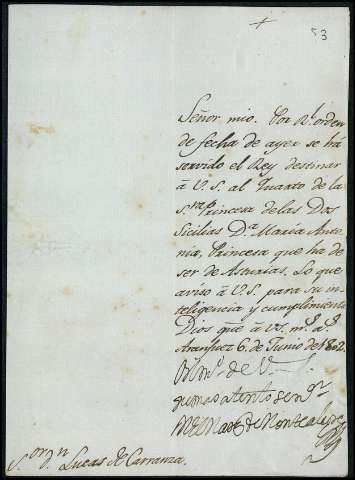 53
Señor mio. Por Rl. orden
de fecha de ayer se há
servido el Rey destinar
à V.S. al Quarto de la
S.ra Princesa de las Dos
Sicilias D.a Maria Anto
nia, Princesa que ha de
ser de Asturias. Lo que
aviso à V.S. para su in
teligencia y cumplimiento
Dios gue. à V.S. m.s a.s
Aranjuez 6. de Junio de 1802.
de V.S.
su mas atento ser.or
S.or D.n Lucas de Carranza.